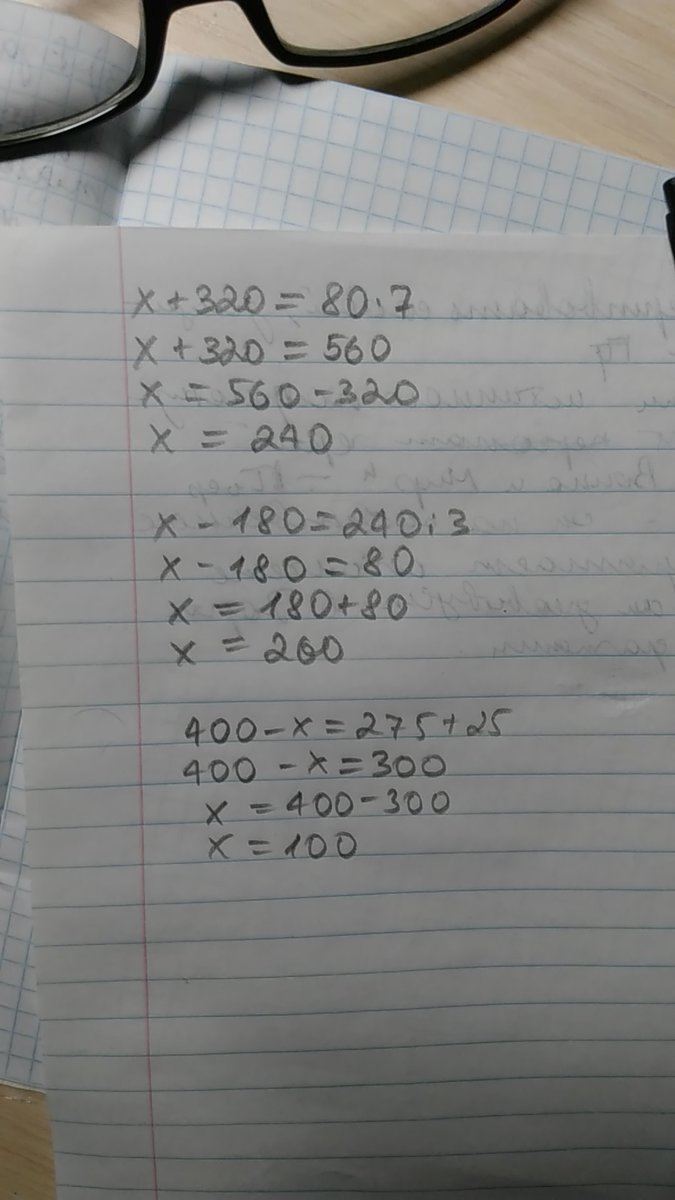 x + 320 = 80 · 7
x + 320 = 560
x = 560 - 320
x = 240
x - 180 = 240 : 3
x - 180 = 80
x = 180 + 80
x = 260
400 - x = 275 + 25
400 - x = 300
x = 400 - 300
x = 100